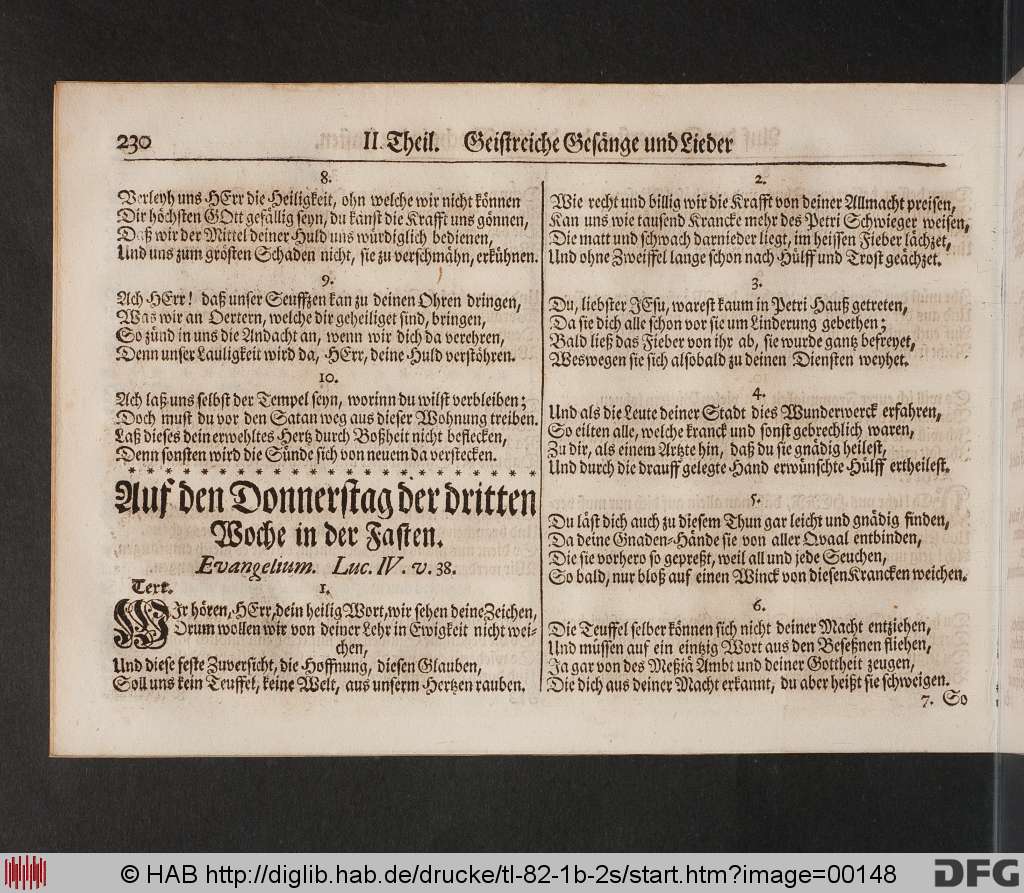 230 II. Theil. Geistreiche Gesänge und Lieder
8.
Verleyh uns HErr die Heiligkeit, ohn welche wir nicht können
Dir höchsten GOtt gefällig seyn, du kanst die Krafft uns gönnen,
Daß wir der Mittel deiner Huld uns würdiglich bedienen,
Und uns zum grösten Schaden nicht, sie zu verschmähn, erkühnen.
9.
Ach HErr! daß unser Seuffzen kan zu deinen Ohren dringen,
Was wir an Oertern, welche dir geheiliget sind, bringen,
So zünd in uns die Andacht an, wenn wir dich da verehren,
Denn unser Lauligkeit wird da, HErr, deine Huld verstöhren.
10.
Ach laß uns selbst der Tempel seyn, worinn du wilst verbleiben;
Doch must du vor den Satan weg aus dieser Wohnung treiben.
Laß dieses dein erwehltes Hertz durch Boßheit nicht beflecken,
Denn sonsten wird die Sünde sich von neuem da verstecken.
* * * * * * * * * * * * * * * * * * * * * * * *
Auf den Donnerstag der dritten
Woche in der Fasten.
Evangelium. Luc. IV. v. 38.
Text. 1.
WIr hören, HErr, dein heilig Wort, wir sehen deine Zeichen,
Drum wollen wir von deiner Lehr in Ewigkeit nicht wei-
chen,
Und diese feste Zuversicht, die Hoffnung, diesen Glauben,
Soll uns kein Teuffel, keine Welt, aus unserm Hertzen rauben.
2.
Wie recht und billig wir die Krafft von deiner Allmacht preisen,
Kan uns wie tausend Krancke mehr des Petri Schwieger weisen,
Die matt und schwach darnieder liegt, im heissen Fieber lächzet,
Und ohne Zweiffel lange schon nach Hülff und Trost geächzet.
3.
Du, liebster JEsu, warest kaum in Petri Hauß getreten,
Da sie dich alle schon vor sie um Linderung gebethen;
Bald ließ das Fieber von ihr ab, sie wurde gantz befreyet,
Weswegen sie sich alsobald zu deinen Diensten weyhet.
4.
Und als die Leute deiner Stadt dies Wunderwerck erfahren,
So eilten alle, welche kranck und sonst gebrechlich waren,
Zu dir, als einem Artzte hin, daß du sie gnädig heilest,
Und durch die drauff gelegte Hand erwünschte Hülff ertheilest.
5.
Du läst dich auch zu diesem Thun gar leicht und gnädig finden,
Da deine Gnaden-Hände sie von aller Qvaal entbinden,
Die sie vorhero so gepreßt, weil all und jede Seuchen,
So bald, nur bloß auf einen Winck von diesen Krancken weichen.
6.
Die Teuffel selber können sich nicht deiner Macht entziehen,
Und müssen auf ein eintzig Wort aus den Beseßnen fliehen,
Ja gar von des Meßiä Ambt und deiner Gottheit zeugen,
Die dich aus deiner Macht erkannt, du aber heißt sie schweigen.
7. So
© HAB http://diglib.hab.de/drucke/tl-82-1b-2s/start.htm?image=00148
DFG